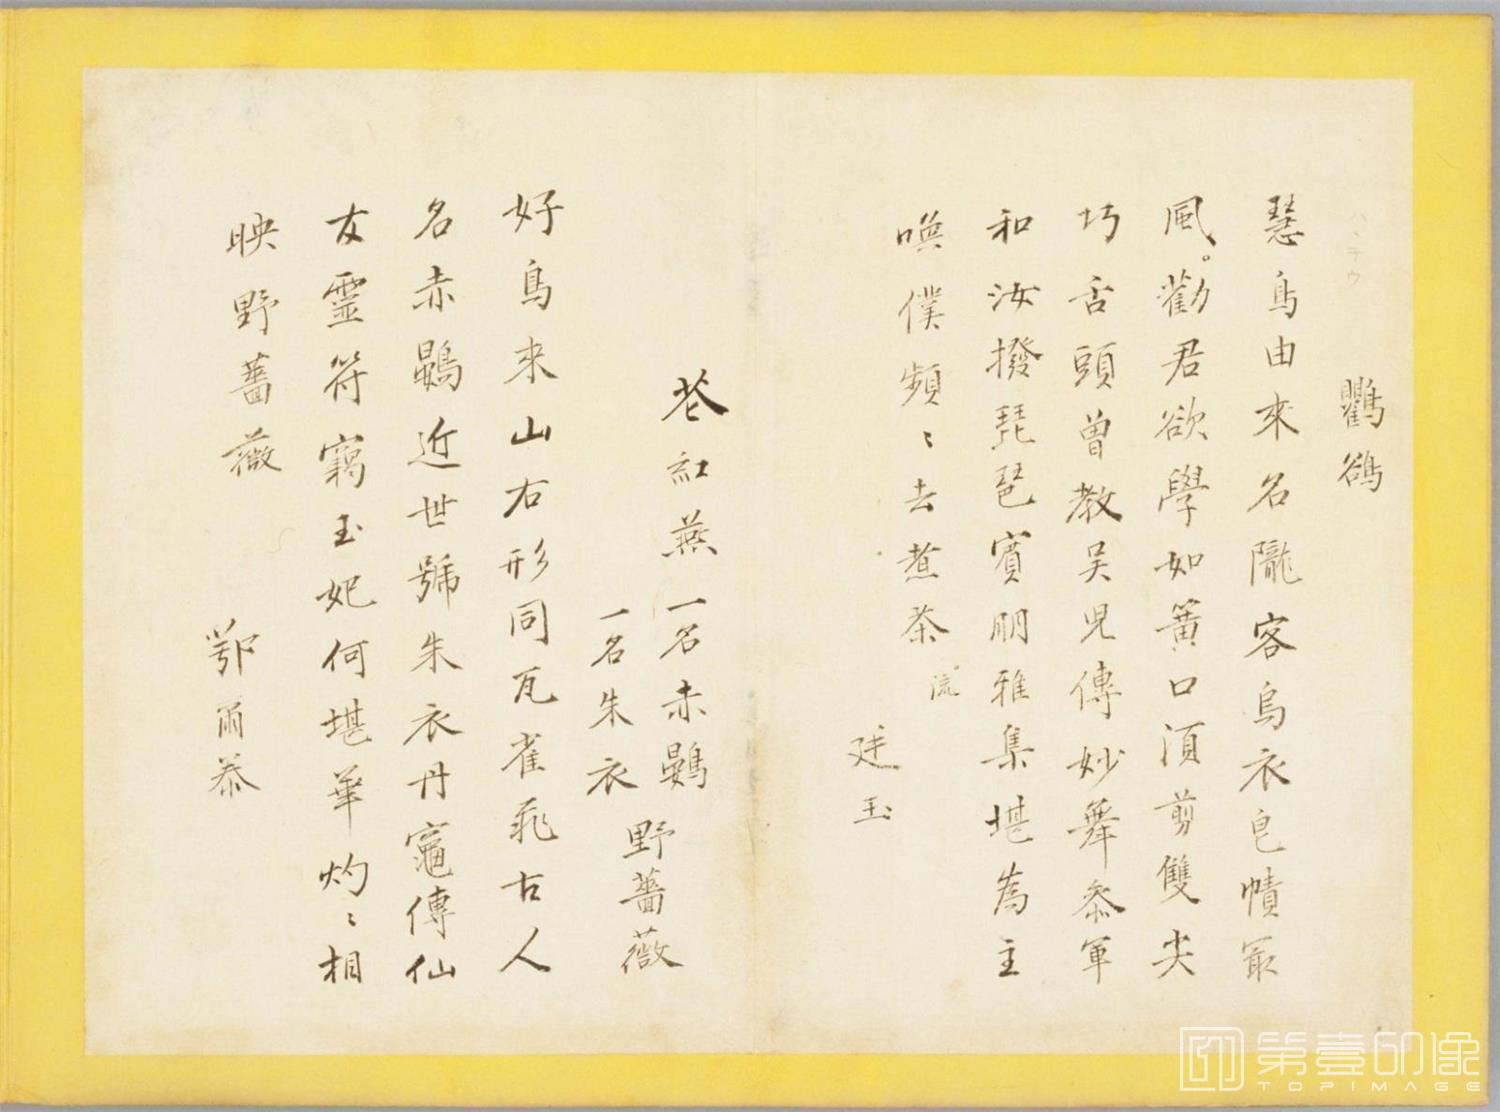 ハヽテウ
鸜鵒
慧鳥由來名隴客烏衣皂幘㝡
風〻。勸君欲學如簧口湏剪雙尖
巧舌頭曾教吴児傳妙舞叅軍
和汝撥琵琶賓朋雅集堪為主
喚僕頻〻去煮茶
流
廷玉
苍紅燕 一名赤鷃
一名朱衣
野薔薇
好鳥来山右形同瓦雀飛古人
名赤鷃近世號朱衣丹竈傳仙
友靈符竊玉妃何堪華灼〻相
映野薔薇
鄂爾泰
第壹印像
TOPIMAGE